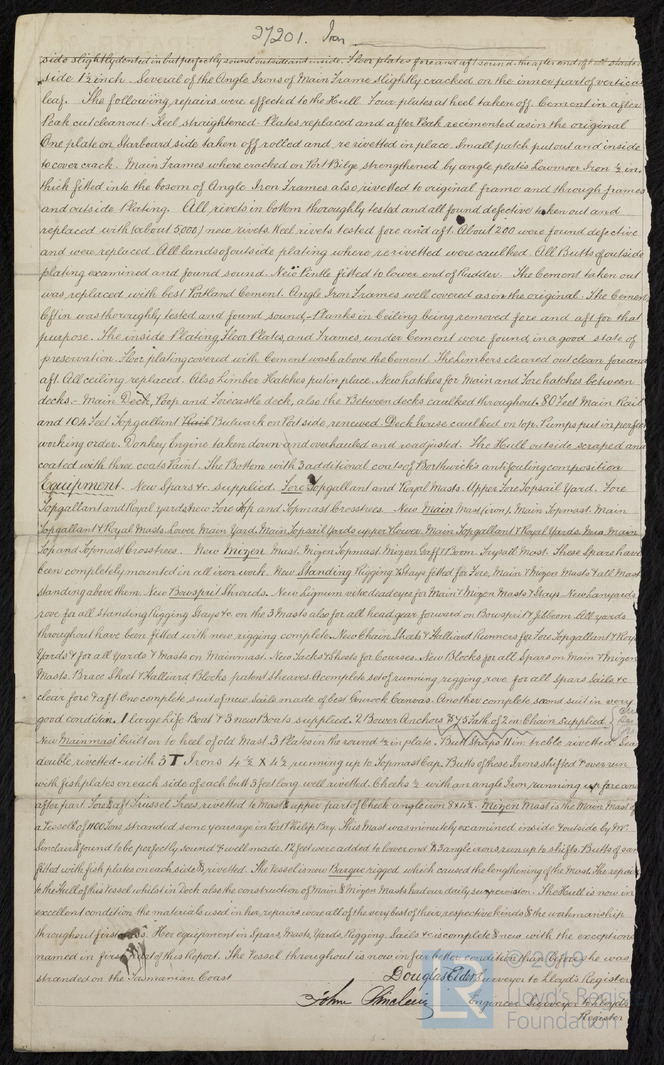 27201. Iron
side slightly dented in but perfectly sound outside and inside. Floor plates fore and aft sound. the after end of
side 1½ inch. Several of the Angle Irons of Main Frame slightly cracked on the inner part of vertical
leaf. The following repairs were effected to the Hull. Four plates at heel taken off. Cement in after
Peak cut clean out. Keel straightened. Plates replaced and after Peak recimented as in the original
One plate on Starboard side taken off rolled and re rivetted in place. Small patch put out and inside
to cover crack. Main Frames where cracked on Port Bilge strengthened by angle plates Lowmoor Iron ½ in.
thick fitted into the bosom of Angle Iron Frames also rivetted to original frame and through frames
and outside Plating. All rivets in bottom thoroughly tested and all found defective taken out and
replaced with (about 5,000) new rivets. Keel rivets tested fore and aft. About 200 were found defective
and were replaced. All lands of outside plating where re rivetted were caulked. All Butts of outside
plating examined and found sound. New Pintle fitted to lower end of Rudder. The Cement taken out
was replaced with best Portland Cement. Angle Iron Frames well covered as on the original. The Cement
left in was thoroughly tested and found sound - Planks in Ceiling being removed fore and aft for that
purpose. The inside Plating, Floor Plates, and Frames, under Cement were found in a good state of
preservation. Floor plating covered with Cement wash above the Cement. The Limbers cleared out clean fore and
aft. All ceiling replaced. Also Limber Hatches put in place. New hatches for Main and Fore hatches between
decks. - Main Deck, Poop and Forecastle deck, also the Between decks caulked throughout. 80 Feet Main Rail
and 104 Feet Topgallant Bulwark on Port side renewed. Deck house caulked on top. Pumps put in perfect
working order. Donkey Engine taken down and overhauled and readjusted. The Hull outside scraped and
coated with three coats Paint. The Bottom with 3 additional coats of Borthwick's antifouling composition
Equipment. New Spars &c. supplied. Fore Topgallant and Royal Masts. Upper Fore Topsail Yard. Fore
Topgallant and Royal yards new Fore Top and Topmast Crosstrees. New Main Mast (iron), Main Topmast. Main
Topgallant & Royal Masts. Lower Main Yard. Main Topsail Yards upper & lower. Main Topgallant & Royal Yards. New Main
Top and Topmast Crosstrees. New Mizen Mast. Mizen Topmast Mizen Gaff & Boom. Trysail Mast. These Spars have
been completely mounted in all iron work. New Standing Rigging & Stays fitted for Fore, Main & Mizen Masts & all Mast
standing above them. New Bowsprit Shrouds. New Lignum vitae dead eyes for Main & Mizen Masts & Stays. New Lanyards
rove for all Standing Rigging Stays &c. on the 3 Masts also for all head gear forward on Bowsprit & Jibboom. All yards
throughout have been fitted with new rigging complete. New Chain Sheets & Halliard Runners for Fore Topgallant & Royal
Yards & for all Yards & Masts on Mainmast. New Tacks & Sheets for Courses. New Blocks for all Spars on Main & Mizen
Masts. Brace Sheet & Halliard Blocks patent sheaves. A complete set of running rigging rove for all Spars Sails &c
clear fore & aft. One complete suit of new Sails made of best Gourock Canvas. Another complete second suit in very
good condition. 1 large Life Boat & 3 new Boats supplied. 2 Bower Anchors & 75 Fath. of 2 in. Chain Supplied
New Mainmast built on to heel of old Mast. 3 Plates in the round ½ in plate. - Butt Straps 11 in. treble rivetted
double rivetted - with 3 T Irons 4½ X 4½, running up to Topmast Cap. Butts of these Irons shifted & over run
with fishplates on each side of each butt 3 feet long well rivetted. Cheeks ½ with an angle Iron running up fore and
after part Fore & aft Trussel Trees, rivetted to Mast & upper part of Cheek angle iron 8 x 4½. Mizen Mast is the Main Mast of
a Vessell of 1100 Tons, stranded some years ago in Port Philip Bay. This Mast was minutely examined inside & outside by Mr.
Sinclair & found to be perfectly sound & well made. 12 feet were added to lower end & 3 angle irons, run up to shifts. Butts of
fitted with fish plates on each side &, rivetted. The Vessel is now Barque rigged which caused the lengthening of the Mast. The repairs
to the Hull of this Vessel whilst in Dock also the construction of Main & Mizen Masts had our daily supervision. The Hull is now in
excellent condition the materials used in her repairs were all of the very best of their respective kinds & the workmanship
throughout first class. Her equipment in Spars, Masts, Yards, Rigging, Sails &c is complete & new with the exceptions
named in first part of this Report. The Vessel throughout is now in far better condition than before she was
stranded on the Tasmanian Coast
Douglas Elder Surveyor to Lloyd's Register
John Sinclair Engineer Surveyor to Lloyd's
Register
LR
© 2019
Lloyd's Register
Foundation